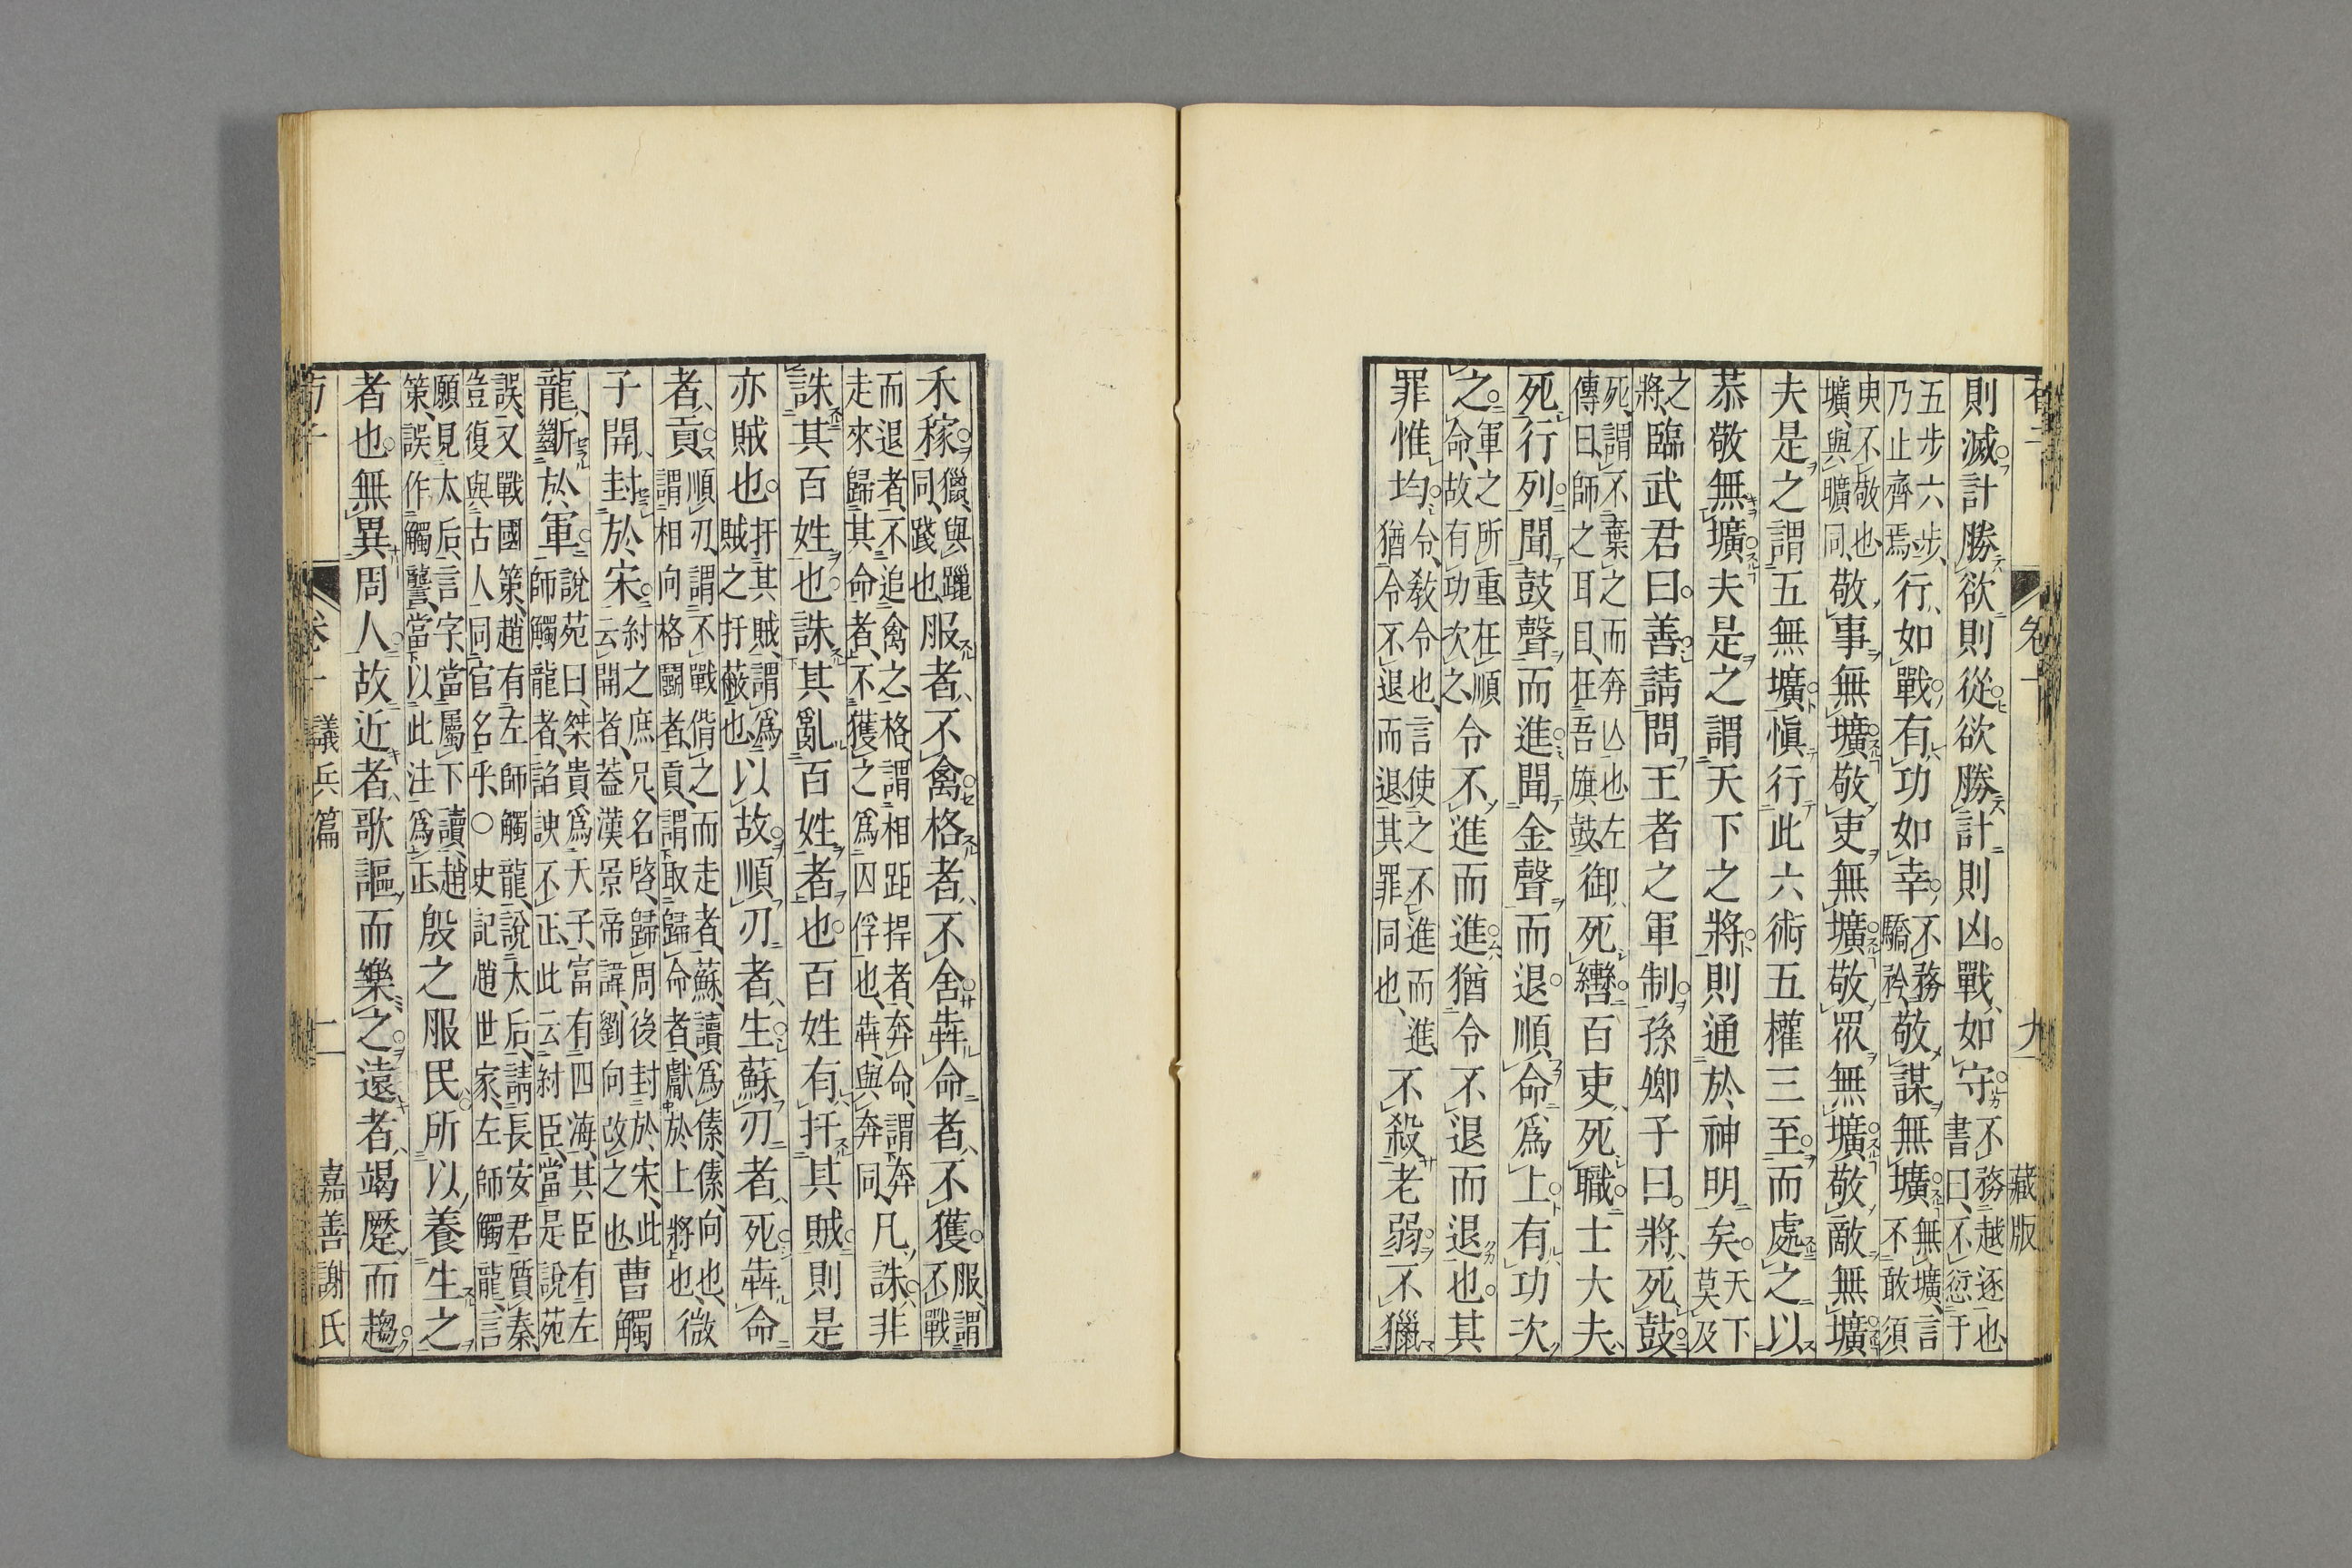 藏版
則滅計勝欲則從欲勝計則凶戰如守不務越逐也書曰不愆于
五步六步乃止齊焉行如戰有功如幸不務驕矜敬謀無壙無壙言不敢須
臾不敬也壙與曠同敬事無壙敬吏無壙敬眾無壙敬敵無壙
夫是之謂五無壙愼行此六術五權三至而處之以
恭敬無壙夫是之謂天下之將則通於神明矣天下莫及
之將臨武君曰善請問王者之軍制孫卿子曰將死鼓
死謂不葉之而奔亾也左傳曰師之耳目在吾旗鼓御死轡百吏死職士大夫
死行列聞鼓聲而進聞金聲而退順命爲上有功次
之軍之所重在順命故有功次之令不進而進猶令不退而退也其
罪惟均令敎令也言使之不進而進猶令不退而退其罪同也不殺老弱不獵
禾稼獵與躐同踐也服者不禽格者不舍犇命者不獲服謂不戰
而退者不追禽之格謂相距捍者奔命謂奔走來歸其命者不獲之爲囚俘也犇與奔同凡誅非
誅其百姓也誅其亂百姓者也百姓有扞其賊則是
亦賊也扞其賊謂爲賊之扞蔽也以故順刃者生蘇刃者死犇命
者貢順刃謂不戰偝之而走者蘇讀爲傃傃向也謂相向格鬭者貢謂取歸命者獻於上將也微
子開封於宋紂之庶兄名啓歸周後封於宋此云開者葢漢景帝諱劉向改之也曹觸
龍斷於軍說苑曰桀貴爲天子富有四海其臣有左師觸龍者諂諛不正此云紂臣當是說苑
誤又戰國策趙有左師觸龍說太后請長安君質秦豈復與古人同官名乎〇史記趙世家左師觸龍言
願見太后言字當屬下讀趙策誤作觸讋當以此注爲正殷之服民所以養生之
者也無異周人故近者歌謳而樂之遠者竭蹷而趨
荀子 卷十 議兵篇 嘉善謝氏